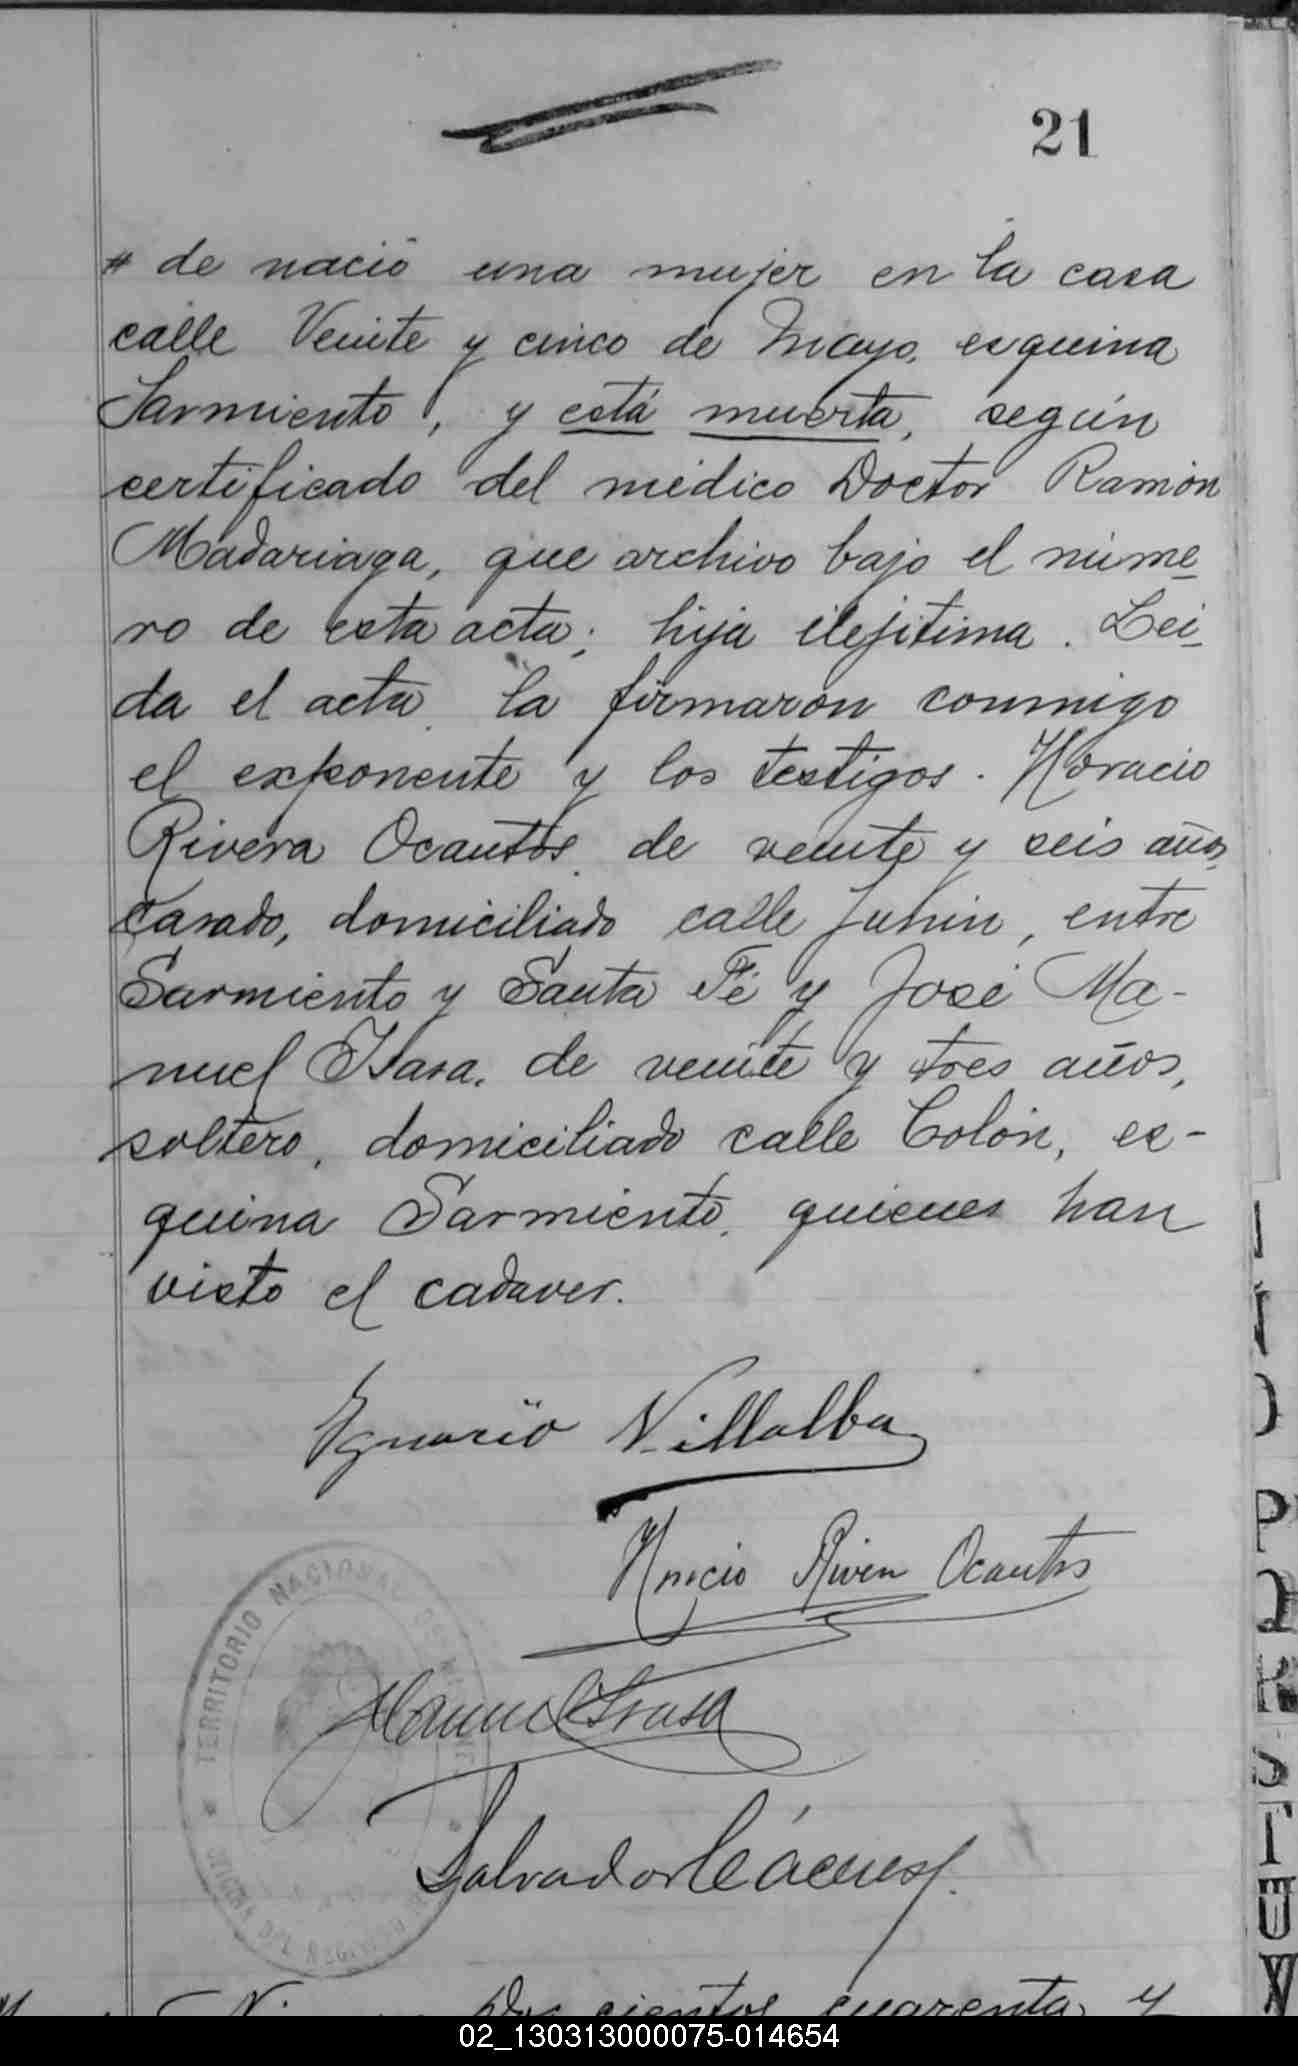 21
# de nació una mujer en la casa
calle Veinte y cinco de Mayo, esquina
Sarmiento, y está muerta, según
certificado del médico Doctor Ramón
Madariaga, que archivo bajo el núme-
ro de esta acta; hija ilejitima. Lei-
da el acta la firmaron conmigo
el exponente y los testigos. Horacio
Rivera Ocantos, de veinte y seis años,
casado, domiciliado calle Junin, entre
Sarmiento y Santa Fé y José Ma-
nuel Isasa, de veinte y tres años,
soltero, domiciliado calle Colón, es-
quina Sarmiento, quienes han
visto el cadaver.
Ignacio Villalba
Horacio Rivera Ocantos
Manuel Isasa
Salvador
TERRITORIO NACIONAL DE MISIONES
OFICINA DEL REGISTRO
Doscientos cuarenta y
P
Q
R
S
T
U
V
02_130313000075-014654